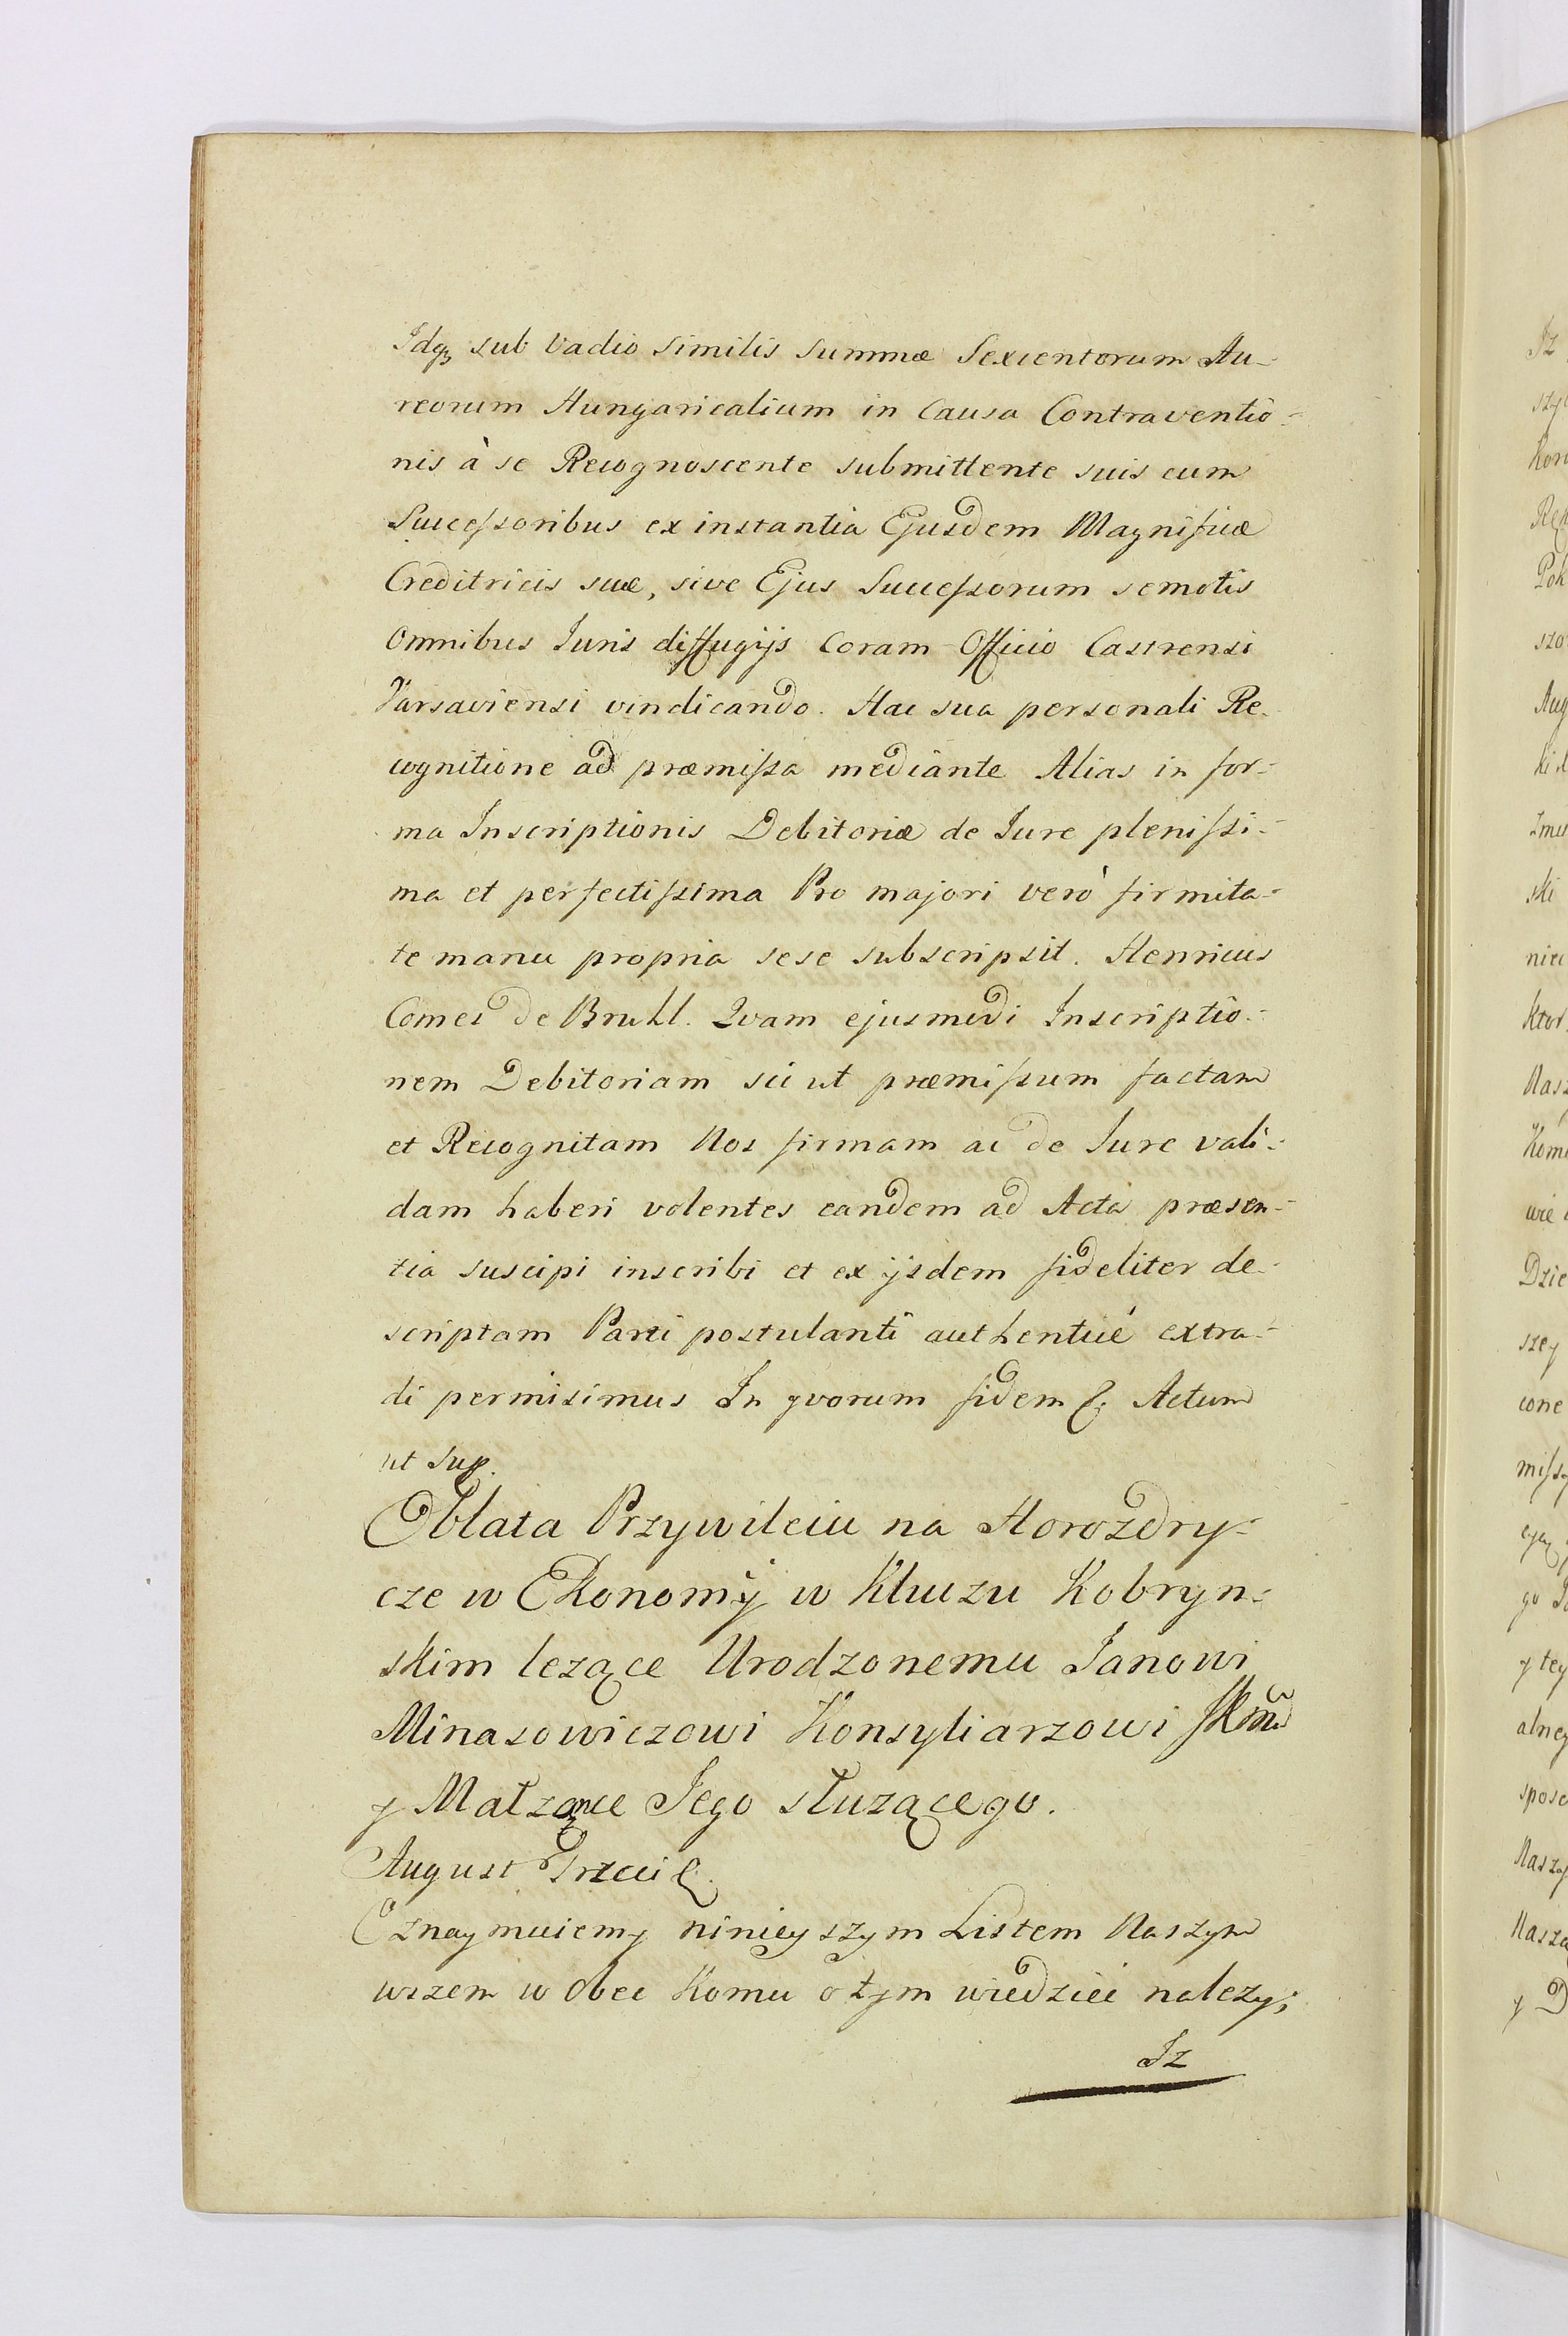 Idq, sub vadio similis summæ Sexcentorum Au-
reorum Hungaricalium in Causa Contraventio-
nis à se Recognoscente submittente suis cum
Successoribus ex instantia Ejusdem Magnificæ
Creditricis suæ, sive Ejus Successorum semotis
Omnibus Juris diffugijs Coram Officio Castrensi
Varsaviensi vindicando. Hac sua personali Re-
cognitione ad præmissa mediante Alias in for-
ma Inscriptionis Debitoriæ de Jure plenissi-
ma et perfectissima Pro majori verò firmita-
te manu propria sese subscripsit. Henricus
Comes de Bruhl. Qvam ejusmodi Inscriptio-
nem Debitoriam sicut præmissum factam
et Recognitam Nos firmam ac de Jure vali-
dam haberi volentes eandem ad Acta præsen-
tia suscipi inscribi et ex ijsdem fideliter de-
scriptam Parti postulanti authenticè extra-
di permisimus In qvorum fidem &. Actum
ut sup.
Oblata Przywileiu na Horozdry-
cze w Ekonomij w Kluczu Kobryn-
skim lezące Urodzonemu Janowi
Minasowiczowi Konsyliarzowi Skmu
y Małzące Jego słuzącego.
August Trzeci &.
Oznaymuiemy ninieyszym Listem Naszym
wszem w obec Komu o tym wiedzieć nalezy;
Iz
Iz
Pok
szo
Aug
ski
nie
ktor
Nasz
Dzie
szey
cone
y tey
alney
spose
Naszy
Nasze